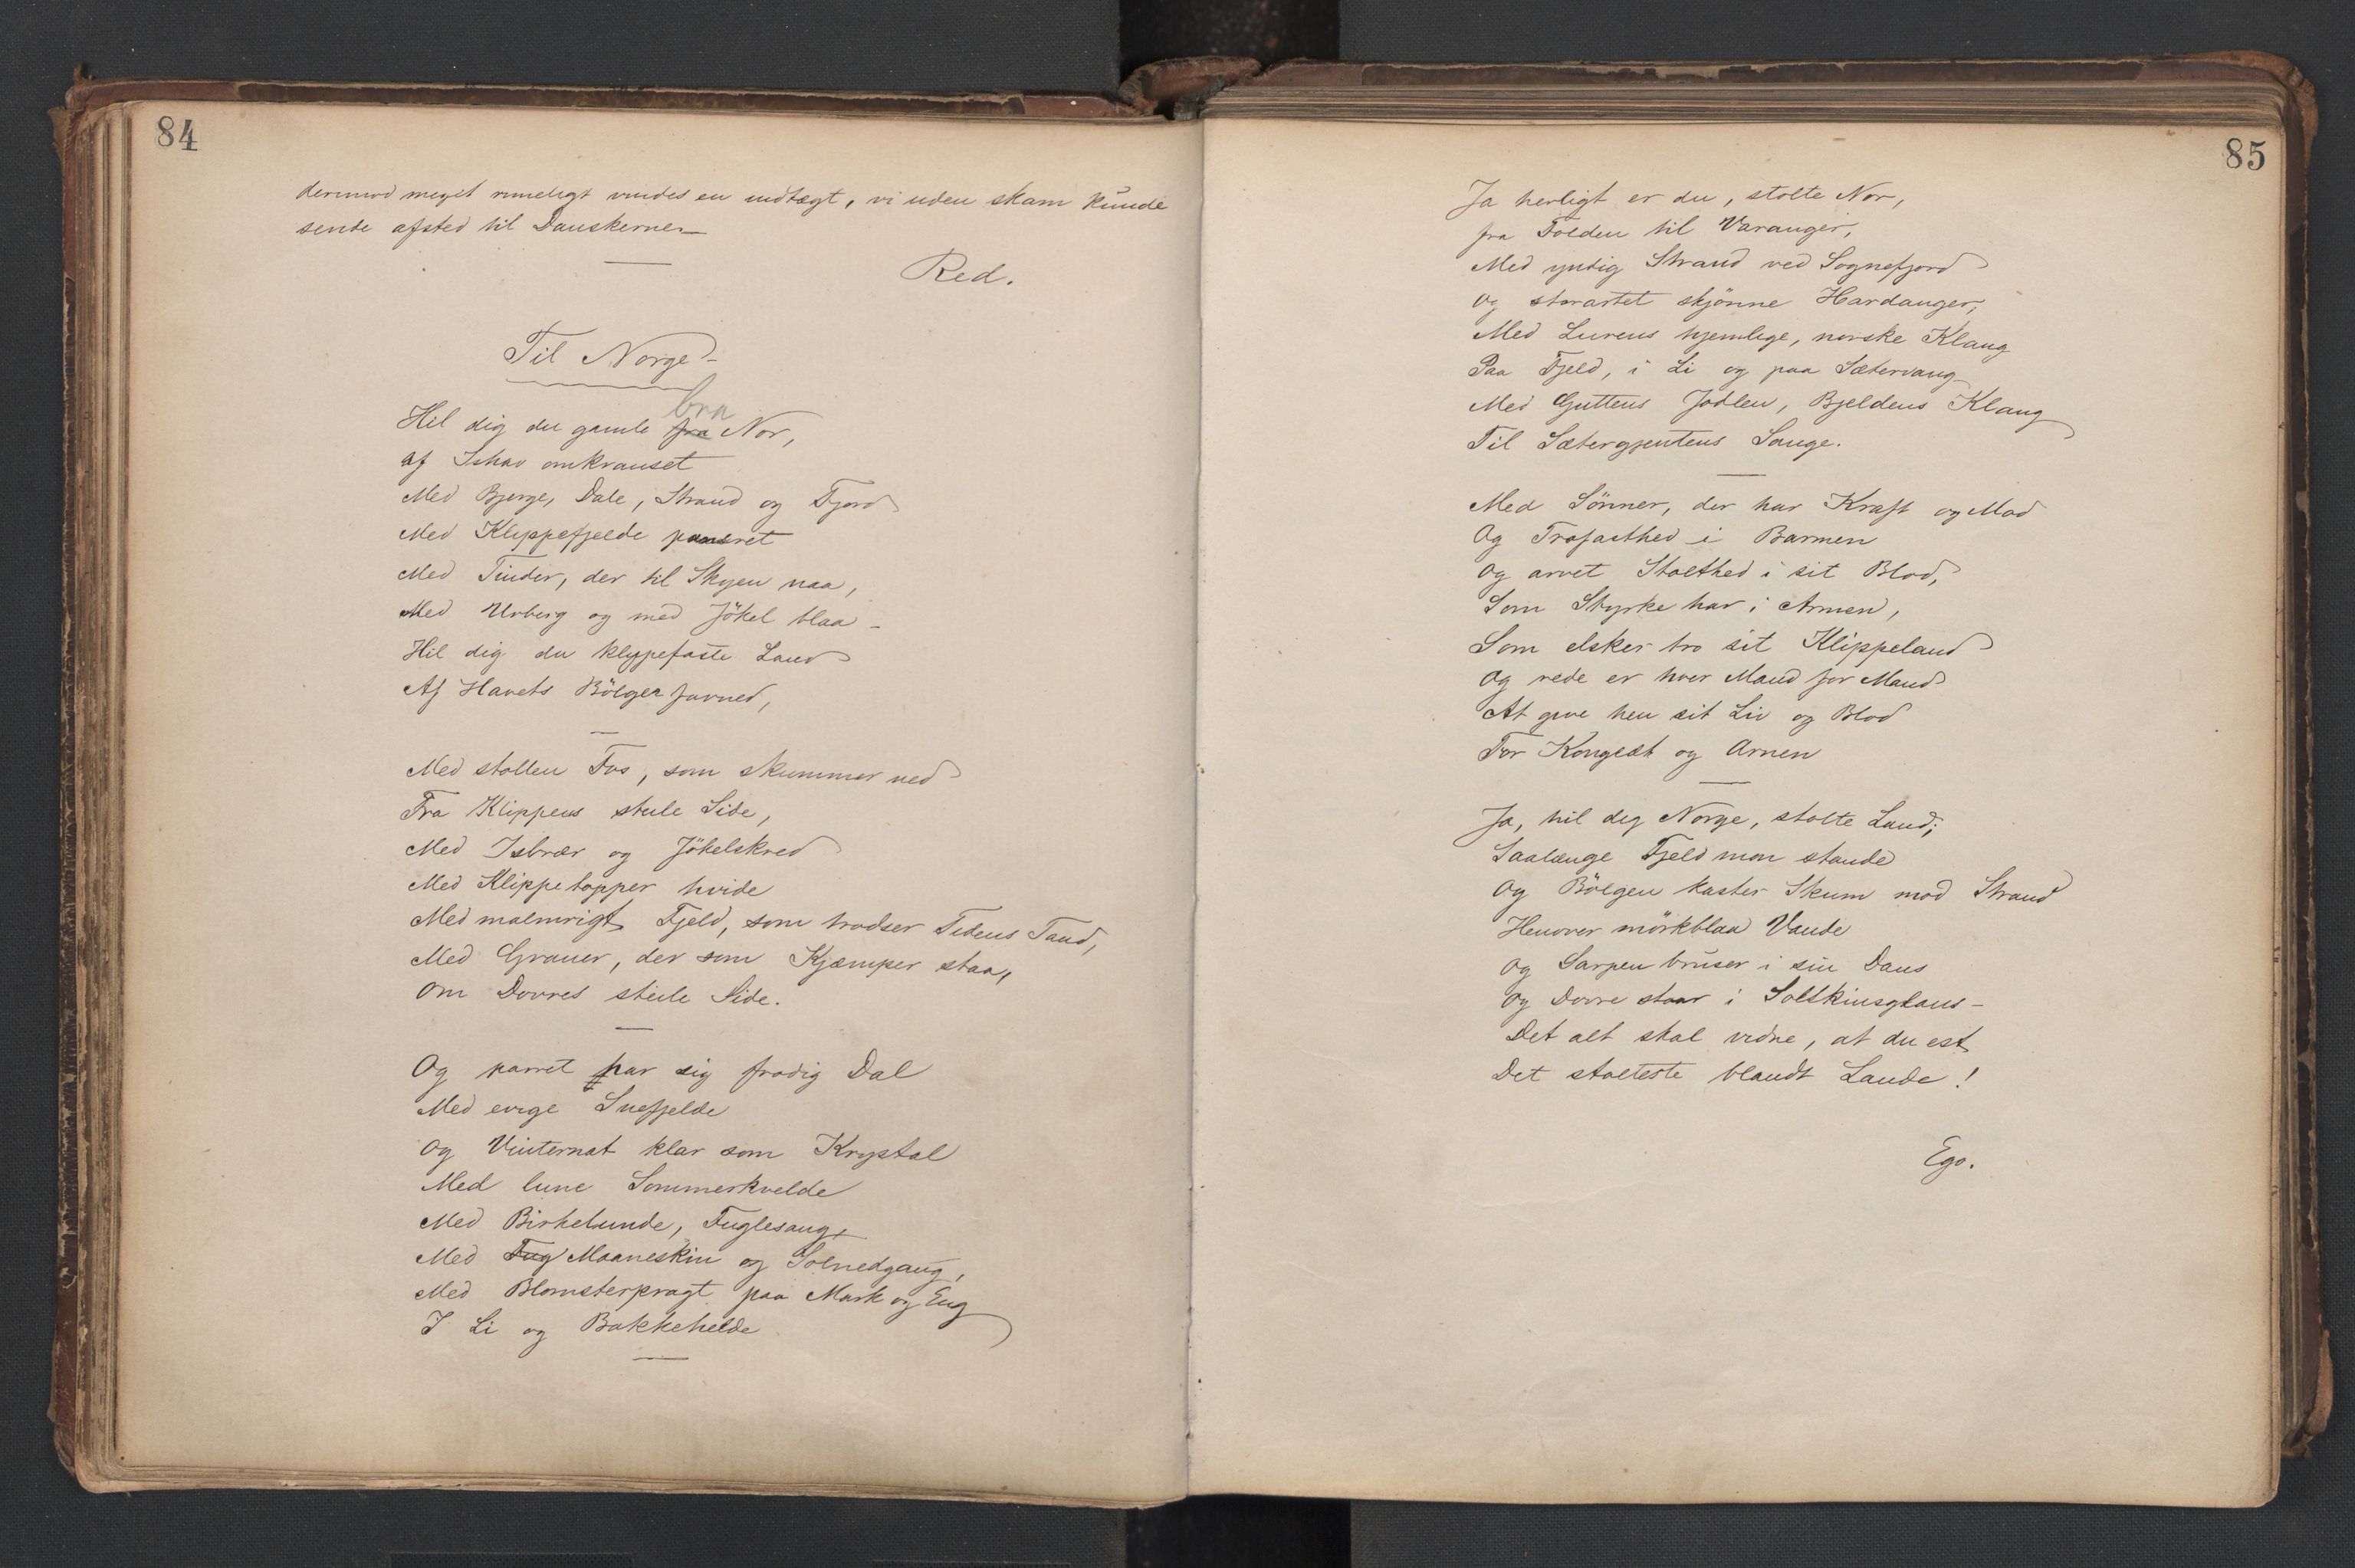 84
dermod meget rimeligt vindes en indtægt, vi uden skam kunde
sende afsted til Danskerne.
Red.
Til Norge
bra
Hil dig du gamle fra Nor,
af Ishav omkranset
Med Bjerge, Dale, Strand og Fjord
Med Klippefjelde panseret
Med Tinder, der til Skyen naa,
Med Urberg og med Jökel blaa -
Hil dig du klyppefaste Land
Af Havets Bölger favned,
Med stolten Fos, som skummer ned
Fra Klippens steile Side,
Med Isbræer og Jökelskred
Med Klippetopper hvide
Med malmrigt Fjeld, som trodser Tidens Tand,
Med Graner, der som Kjæmper staa,
Om Dovres steile Side.
Og parret har sig frodig Dal
Med evige Snefjelde
Og Vinternat klar som Krystal
Med lune Sommerkvelde
Med Birkelunde, Fuglesang,
Med Fug Maaneskin og Solnedgang,
Med Blomsterpragt paa Mark og Eng
I Li og Bakkehelde
85
Ja herligt er du, stolte Nor,
fra Folden til Varanger,
Med yndig Strand ved Sognefjord
Og storartet skjönne Hardanger,
Med Lurens hjemlige, norske Klang
Paa Fjeld, i Li og paa Sætervang
Med Guttens Jodlen, Bjeldens Klang
Til Sætergjentens Sange.
Med Sönner, der har Kraft og Mod
Og Trofasthed i Barmen
Og arvet Stolthed i sit Blod,
Som Styrke har i Armen,
Som elsker tro sit Klippeland
Og rede er hver Mand for Mand
At give hen sit Liv og Blod
For Kongeæt og Arnen
Ja, hil dig Norge, stolte Land;
Saalænge Fjeld mon stande
Og Bölgen kaster Skum mod Strand
Henover mörkblaa Vande
Og Sarpen bruser i sin Dans
Og Dovre staar i Solskinsglans -
Det alt skal vidne, at du est
Det stolteste blandt Lande!
Ego.